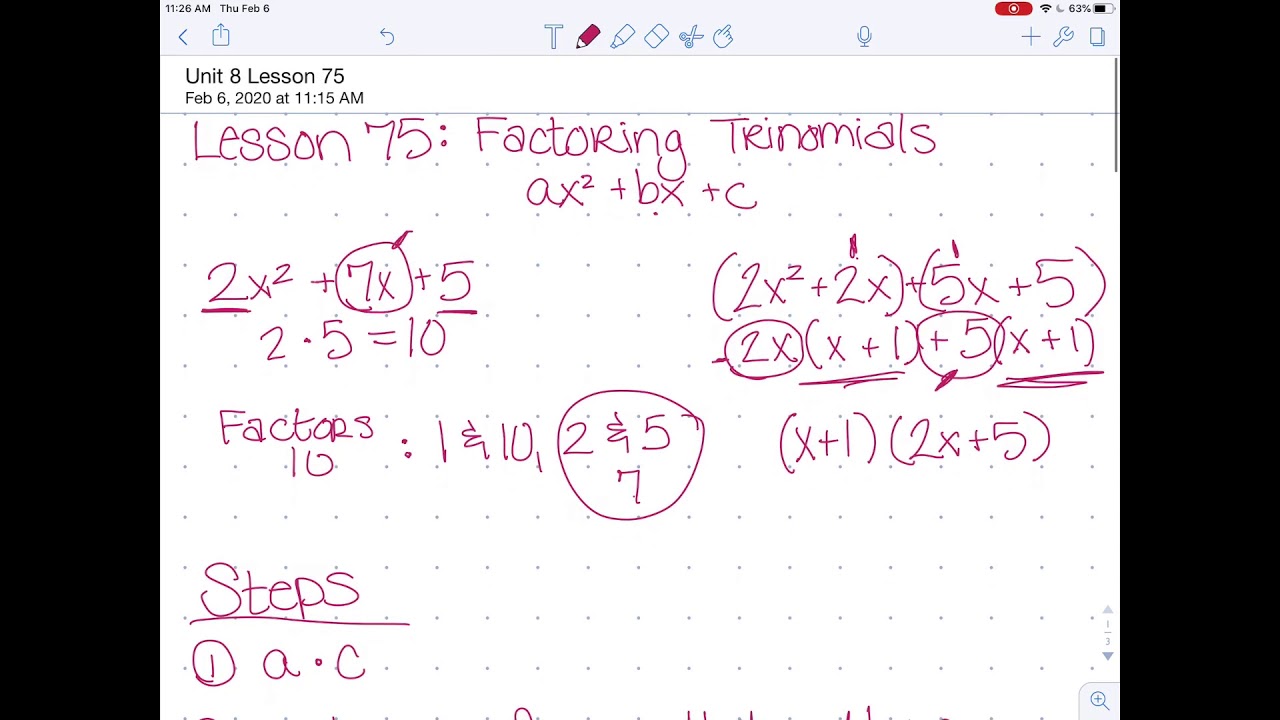 11:26 AM Thu Feb 6
63%
T
Unit 8 Lesson 75
Feb 6, 2020 at 11:15 AM
Lesson 75: Factoring Trinomials
ax² + bx + c
2x² + 7x + 5
2 · 5 = 10
(2x² + 2x) + (5x + 5)
2x (x + 1) + 5 (x + 1)
Factors
10
: 1 & 10, 2 & 5
7
(x+1) (2x+5)
Steps
① a · c
1
3